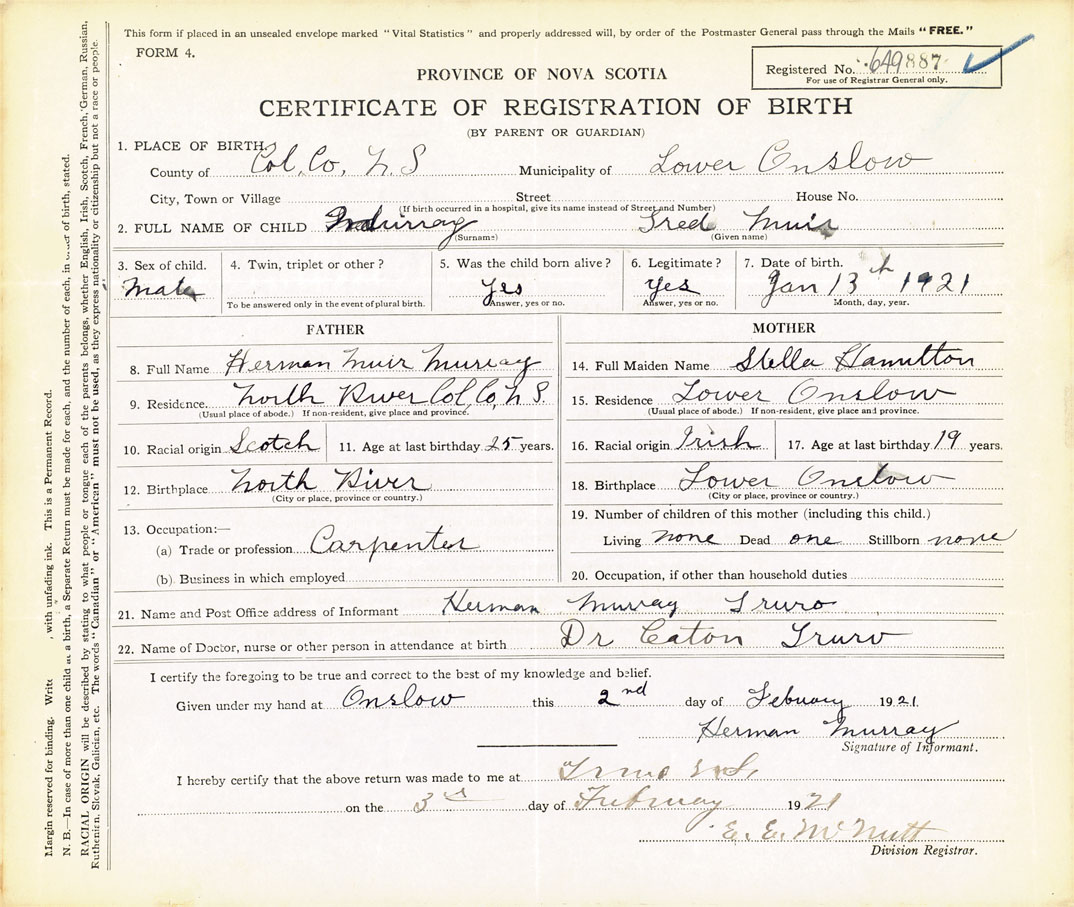 This form if placed in an unsealed envelope marked "Vital Statistics" and properly addressed will, by order of the Postmaster General pass through the Mails "FREE."
FORM 4.
Registered No. 649887
For use of Registrar General only.
PROVINCE OF NOVA SCOTIA
CERTIFICATE OF REGISTRATION OF BIRTH
(BY PARENT OR GUARDIAN)
1. PLACE OF BIRTH.
County of Col, Co, N. S Municipality of Lower Onslow
City, Town or Village Street House No.
(If birth occurred in a hospital, give its name instead of Street and Number)
2. FULL NAME OF CHILD Murray Fred Muir
(Surname) (Given name)
3. Sex of child. 4. Twin, triplet or other? 5. Was the child born alive? 6. Legitimate? 7. Date of birth.
Male Yes Yes Jan 13th 1921
To be answered only in the event of plural birth. Answer, yes or no. Answer, yes or no. Month, day, year.
FATHER
8. Full Name Herman Muir Murray
9. Residence. North River Col, Co, N S.
(Usual place of abode.) If non-resident, give place and province.
10. Racial origin Scotch 11. Age at last birthday 25 years.
12. Birthplace North River
(City or place, province or country.)
13. Occupation:—
(a) Trade or profession Carpenter
(b) Business in which employed
MOTHER
14. Full Maiden Name Stella Hamilton
15. Residence Lower Onslow
(Usual place of abode.) If non-resident, give place and province.
16. Racial origin Irish 17. Age at last birthday 19 years.
18. Birthplace Lower Onslow
(City or place, province or country.)
19. Number of children of this mother (including this child.)
Living none Dead one Stillborn none
20. Occupation, if other than household duties
21. Name and Post Office address of Informant Herman Murray Truro
22. Name of Doctor, nurse or other person in attendance at birth Dr Eaton Truro
I certify the foregoing to be true and correct to the best of my knowledge and belief.
Given under my hand at Onslow this 2nd day of Febuary 1921.
Herman Murray
Signature of Informant.
I hereby certify that the above return was made to me at Truro N.S.
on the 3rd day of February 1921
E. E. McNutt
Division Registrar.
Margin reserved for binding. Write with unfading ink. This is a Permanent Record.
N. B.—In case of more than one child at a birth, a Separate Return must be made for each, and the number of each, in order of birth, stated.
RACIAL ORIGIN will be described by stating to what people or tongue each of the parents belongs, whether English, Irish, Scotch, French, German, Russian,
Ruthenian, Slovak, Galician, etc. The words "Canadian" or "American" must not be used, as they express nationality or citizenship but not a race or people.